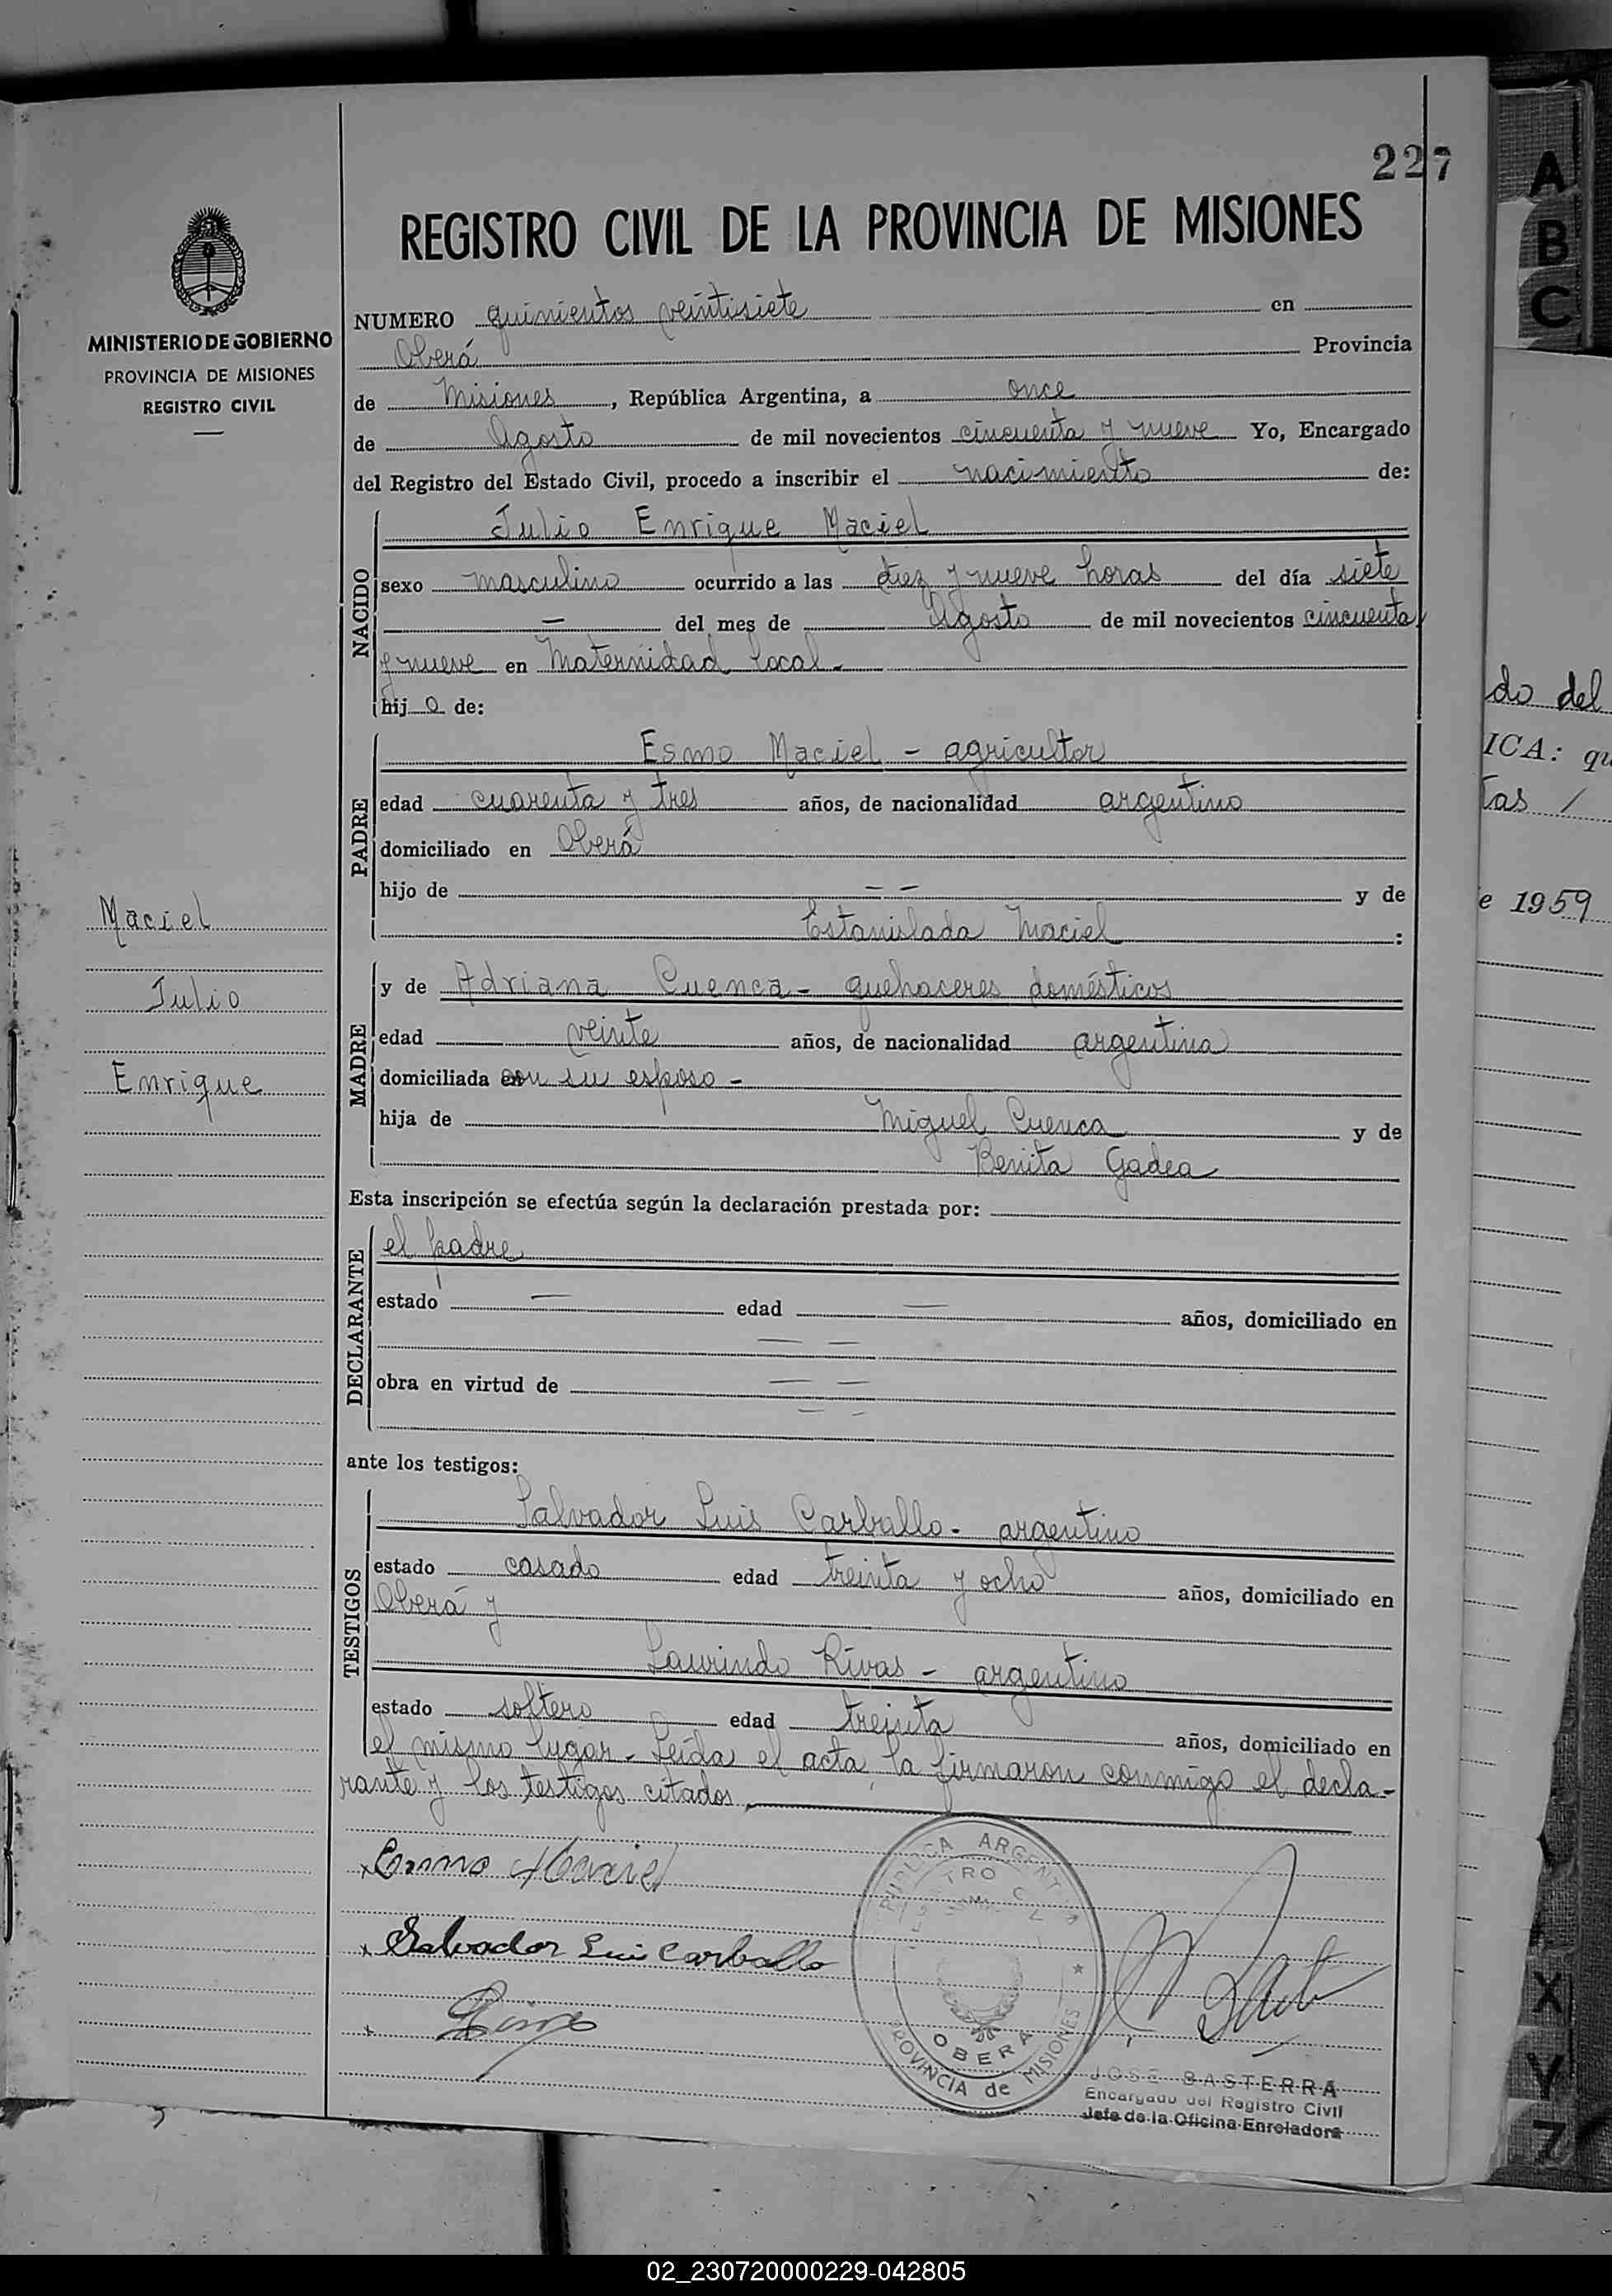 227
REGISTRO CIVIL DE LA PROVINCIA DE MISIONES
MINISTERIO DE GOBIERNO
PROVINCIA DE MISIONES
REGISTRO CIVIL
NUMERO quinientos veintisiete en
Oberá Provincia
de Misiones, República Argentina, a once
de Agosto de mil novecientos cincuenta y nueve Yo, Encargado
del Registro del Estado Civil, procedo a inscribir el nacimiento de:
NACIDO
Julio Enrique Maciel
sexo masculino ocurrido a las diez y nueve horas del día siete
— del mes de Agosto de mil novecientos cincuenta
y nueve en Maternidad local.
hijo de:
PADRE
Esmo Maciel - agricultor
edad cuarenta y tres años, de nacionalidad argentino
domiciliado en Oberá
hijo de — — y de
Estanislada Maciel :
Maciel
Julio
Enrique
MADRE
y de Adriana Cuenca - quehaceres domésticos
edad veinte años, de nacionalidad argentina
domiciliada con su esposo -
hija de Miguel Cuenca y de
Benita Gadea
Esta inscripción se efectúa según la declaración prestada por:
DECLARANTE
el padre
estado — edad — años, domiciliado en
— —
obra en virtud de — —
— -
ante los testigos:
TESTIGOS
Salvador Luis Carballo - argentino
estado casado edad treinta y ocho años, domiciliado en
Oberá y
Laurindo Rivas - argentino
estado soltero edad treinta años, domiciliado en
el mismo lugar - Leída el acta, la firmaron conmigo el decla-
rante y los testigos citados
x Esmo Maciel
x Salvador Luis Carballo
x
REPUBLICA ARGENTINA
REGISTRO CIVIL
OBERA
PROVINCIA de MISIONES
JOSE BASTERRA
Encargado del Registro Civil
Jefe de la Oficina Enroladora
A
B
C
X
Y
Z
do del
ICA: qu
tas /
e 1959
02_230720000229-042805